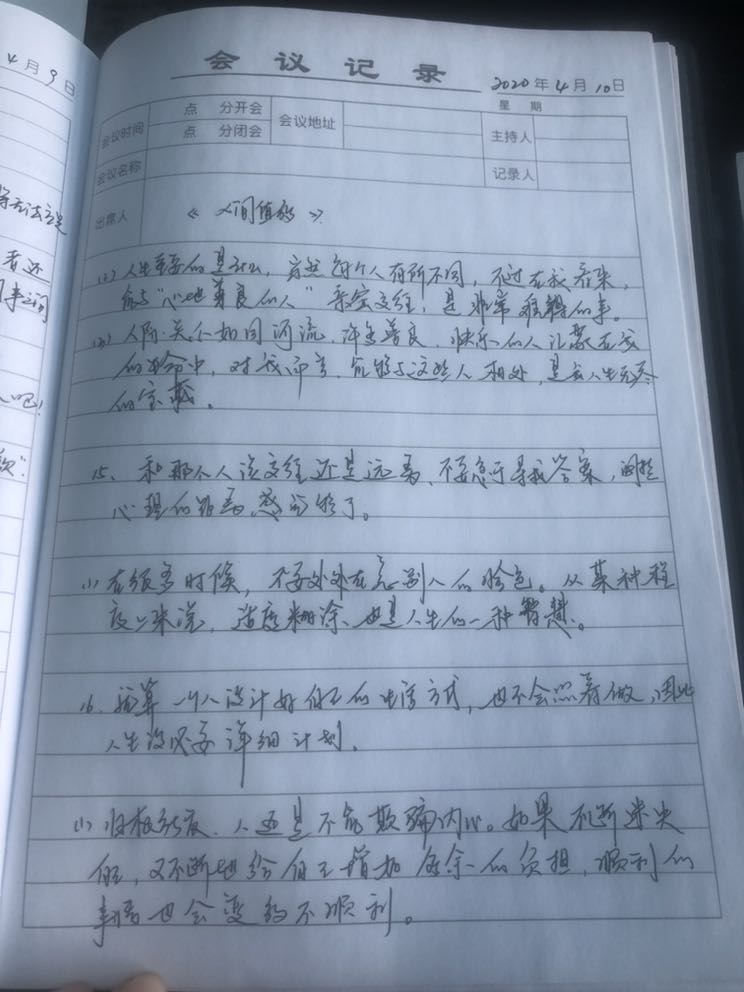 4月9日
会议记录
2020年4月10日
星 期
会议时间
点 分开会
点 分闭会
会议地址
主持人
会议名称
记录人
出席人
《人间值得》
人生重要的是, 每个人有所不同, 不过在我看来,
能与“心地善良的人”亲密交往, 是非常难得的事。
人际关系如同河流, 许多善良、快乐的人汇聚在我
的生命中, 对我而言, 能够与这些人相处, 是我人生
的宝藏。
15、和那个人该交往还是远离, 不要急于寻找答案, 调整
心理的距离就够了。
(1) 在很多时候, 不要处处在意别人的脸色。从某种程
度上来说, 适度糊涂也是人生的一种智慧。
16、一个人设计好自己的生活方式, 也不会照着做, 因此
人生没必要详细计划。
(1) 归根结底, 人还是不能欺骗内心。如果不断迷失
自己, 又不断地给自己增加多余的负担, 顺利的
事情也会变得不顺利。